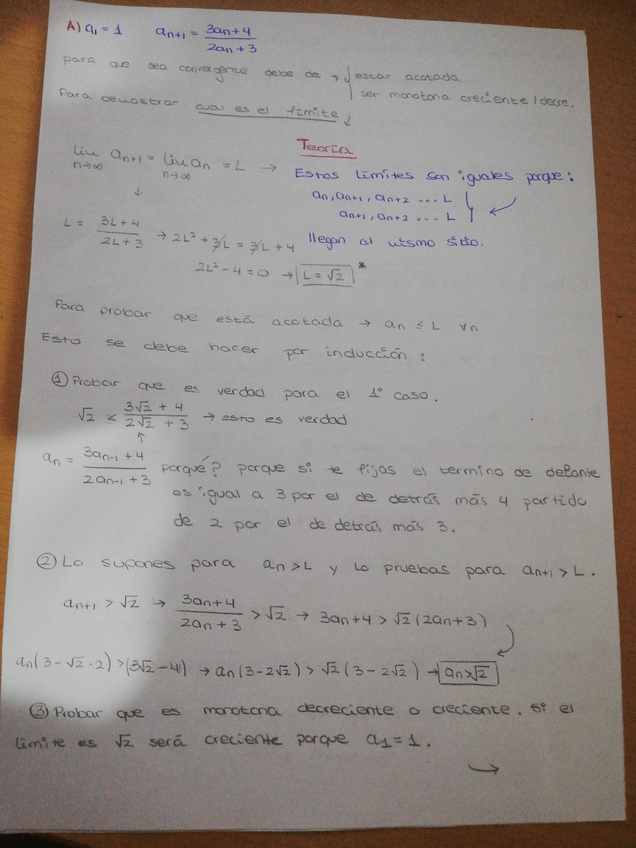 A) a₁ = 1 aₙ₊₁ = (3aₙ + 4)/(2aₙ + 3)
para que sea convergente debe de → estar acotada
ser monotona creciente / decre.
Para demostrar cual es el limite ↓
lim n→∞ aₙ₊₁ = lim n→∞ aₙ = L →
Teoría
Estos limites son iguales porque:
aₙ, aₙ₊₁, aₙ₊₂ ... L
aₙ₊₁, aₙ₊₂ ... L
llegan al mismo sitio.
↓
L = (3L + 4)/(2L + 3) → 2L² + 3L = 3L + 4
2L² - 4 = 0 → L = √2 *
Para probar que está acotada → aₙ ≤ L ∀n
Esto se debe hacer por inducción:
① Probar que es verdad para el 1º caso.
√2 < (3√2 + 4)/(2√2 + 3) → esto es verdad
↑
aₙ = (3aₙ₋₁ + 4)/(2aₙ₋₁ + 3) porqué? porque si te fijas el termino de delante
es igual a 3 por el de detrás más 4 partido
de 2 por el de detrás más 3.
② Lo supones para aₙ > L y lo pruebas para aₙ₊₁ > L.
aₙ₊₁ > √2 → (3aₙ + 4)/(2aₙ + 3) > √2 → 3aₙ + 4 > √2 (2aₙ + 3)
aₙ(3 - √2 · 2) > (3√2 - 4) → aₙ(3 - 2√2) > √2 (3 - 2√2) → aₙ > √2
③ Probar que es monotona decreciente o creciente. Si el
limite es √2 será creciente porque a₁ = 1.
→